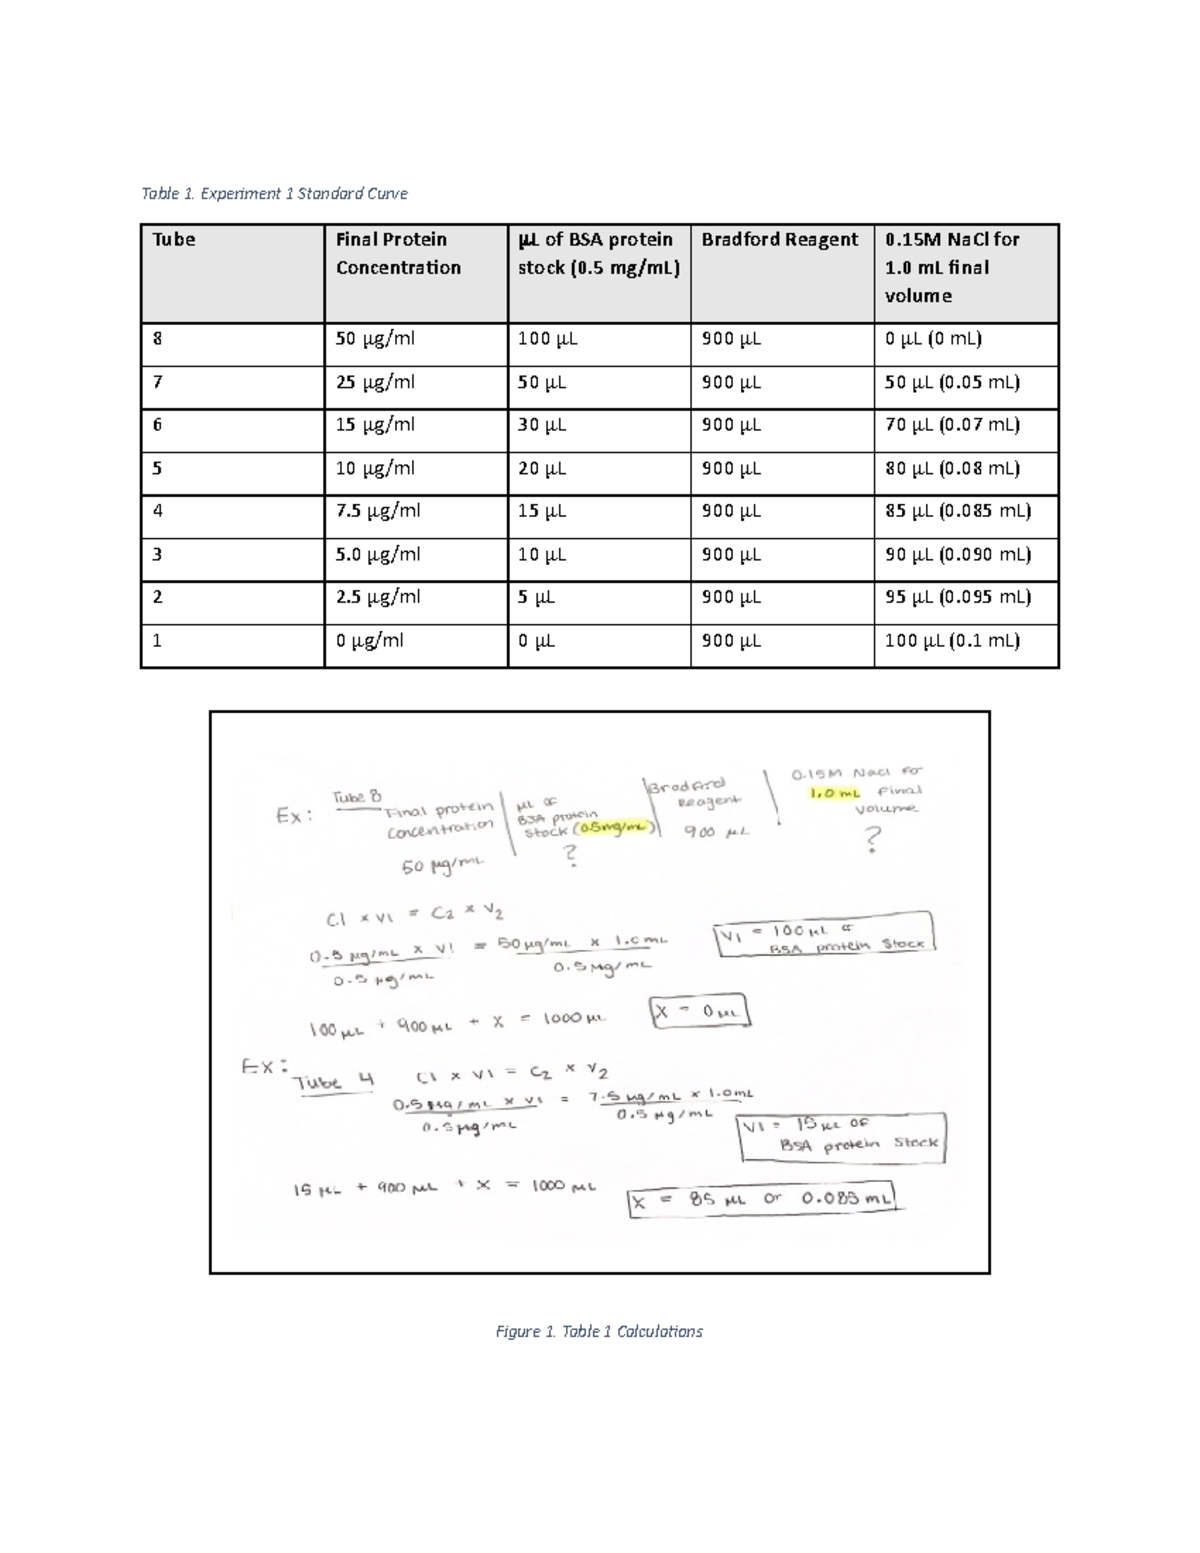 Table 1. Experiment 1 Standard Curve
Tube | Final Protein Concentration | µL of BSA protein stock (0.5 mg/mL) | Bradford Reagent | 0.15M NaCl for 1.0 mL final volume
8 | 50 µg/ml | 100 µL | 900 µL | 0 µL (0 mL)
7 | 25 µg/ml | 50 µL | 900 µL | 50 µL (0.05 mL)
6 | 15 µg/ml | 30 µL | 900 µL | 70 µL (0.07 mL)
5 | 10 µg/ml | 20 µL | 900 µL | 80 µL (0.08 mL)
4 | 7.5 µg/ml | 15 µL | 900 µL | 85 µL (0.085 mL)
3 | 5.0 µg/ml | 10 µL | 900 µL | 90 µL (0.090 mL)
2 | 2.5 µg/ml | 5 µL | 900 µL | 95 µL (0.095 mL)
1 | 0 µg/ml | 0 µL | 900 µL | 100 µL (0.1 mL)
Ex: Tube 8
Final protein
concentration
50 µg/mL
µL of
BSA protein
stock (0.5mg/mL)
?
Bradford
Reagent
900 µL
0.15M NaCl for
1.0 mL final
volume
?
C1 x V1 = C2 x V2
0.5 µg/mL x V1 = 50 µg/mL x 1.0 mL
0.5 µg/mL 0.5 µg/mL
V1 = 100 µL of
BSA protein stock
100 µL + 900 µL + X = 1000 µL
X = 0 µL
Ex: Tube 4
C1 x V1 = C2 x V2
0.5 µg/mL x V1 = 7.5 µg/mL x 1.0mL
0.5 µg/mL 0.5 µg/mL
V1 = 15 µL of
BSA protein stock
15 µL + 900 µL + X = 1000 µL
X = 85 µL or 0.085 mL
Figure 1. Table 1 Calculations